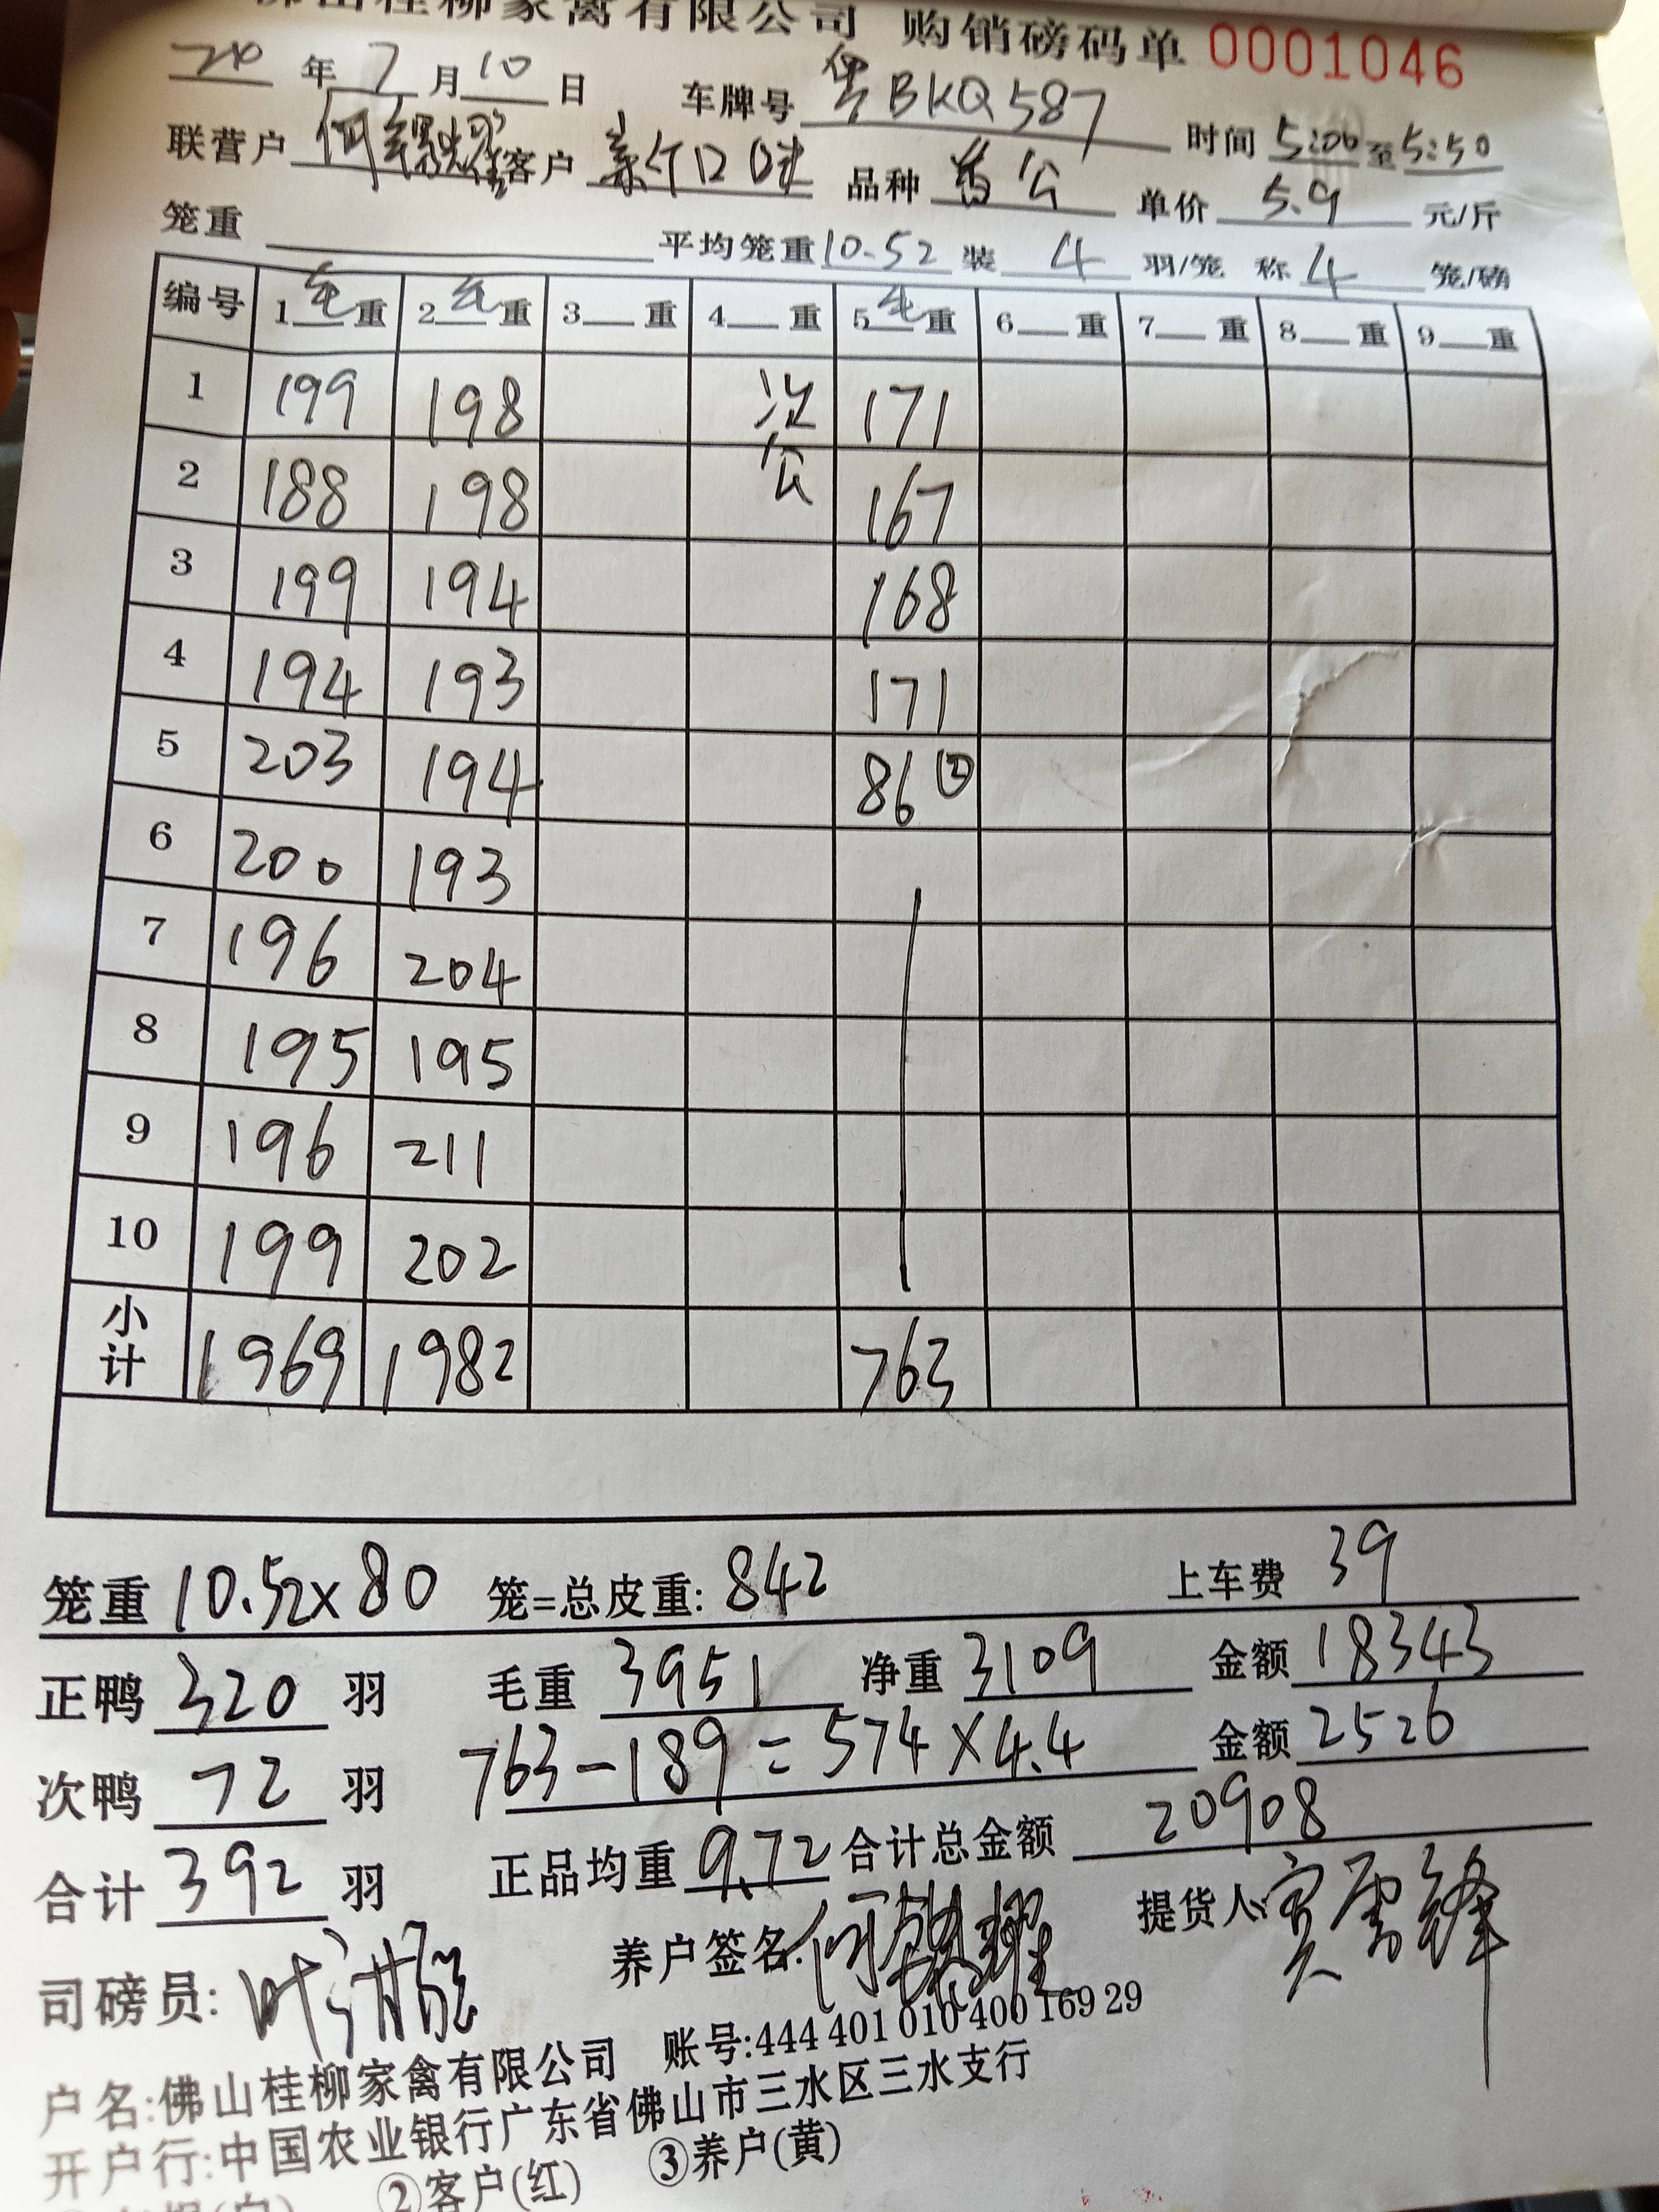 佛山桂柳家禽有限公司 购销磅码单 0001046
20 年 7 月 10 日 车牌号 粤BKQ587
联营户 何 客户 口 品种 公 时间 5:00 至 5:50
笼重 平均笼重 10.52 装 4 羽/笼 称 4 笼/磅 单价 5.9 元/斤
编号 1 毛 重 2 毛 重 3 重 4 重 5 毛 重 6 重 7 重 8 重 9 重
1 199 198 次 171
2 188 198 公 167
3 199 194 168
4 194 193 171
5 203 194 86 ②
6 200 193
7 196 204
8 195 195
9 196 211
10 199 202
小计 1969 1982 763
笼重 10.52×80 笼=总皮重: 842 上车费 39
正鸭 320 羽 毛重 3951 净重 3109 金额 18343
次鸭 72 羽 763-189=574×4.4 金额 2526
合计 392 羽 正品均重 9.72 合计总金额 20908
司磅员: 叶 养户签名: 何 耀 提货人: 雪锋
户名:佛山桂柳家禽有限公司 账号:444 401 010 400 169 29
开户行:中国农业银行广东省佛山市三水区三水支行
②客户(红) ③养户(黄)